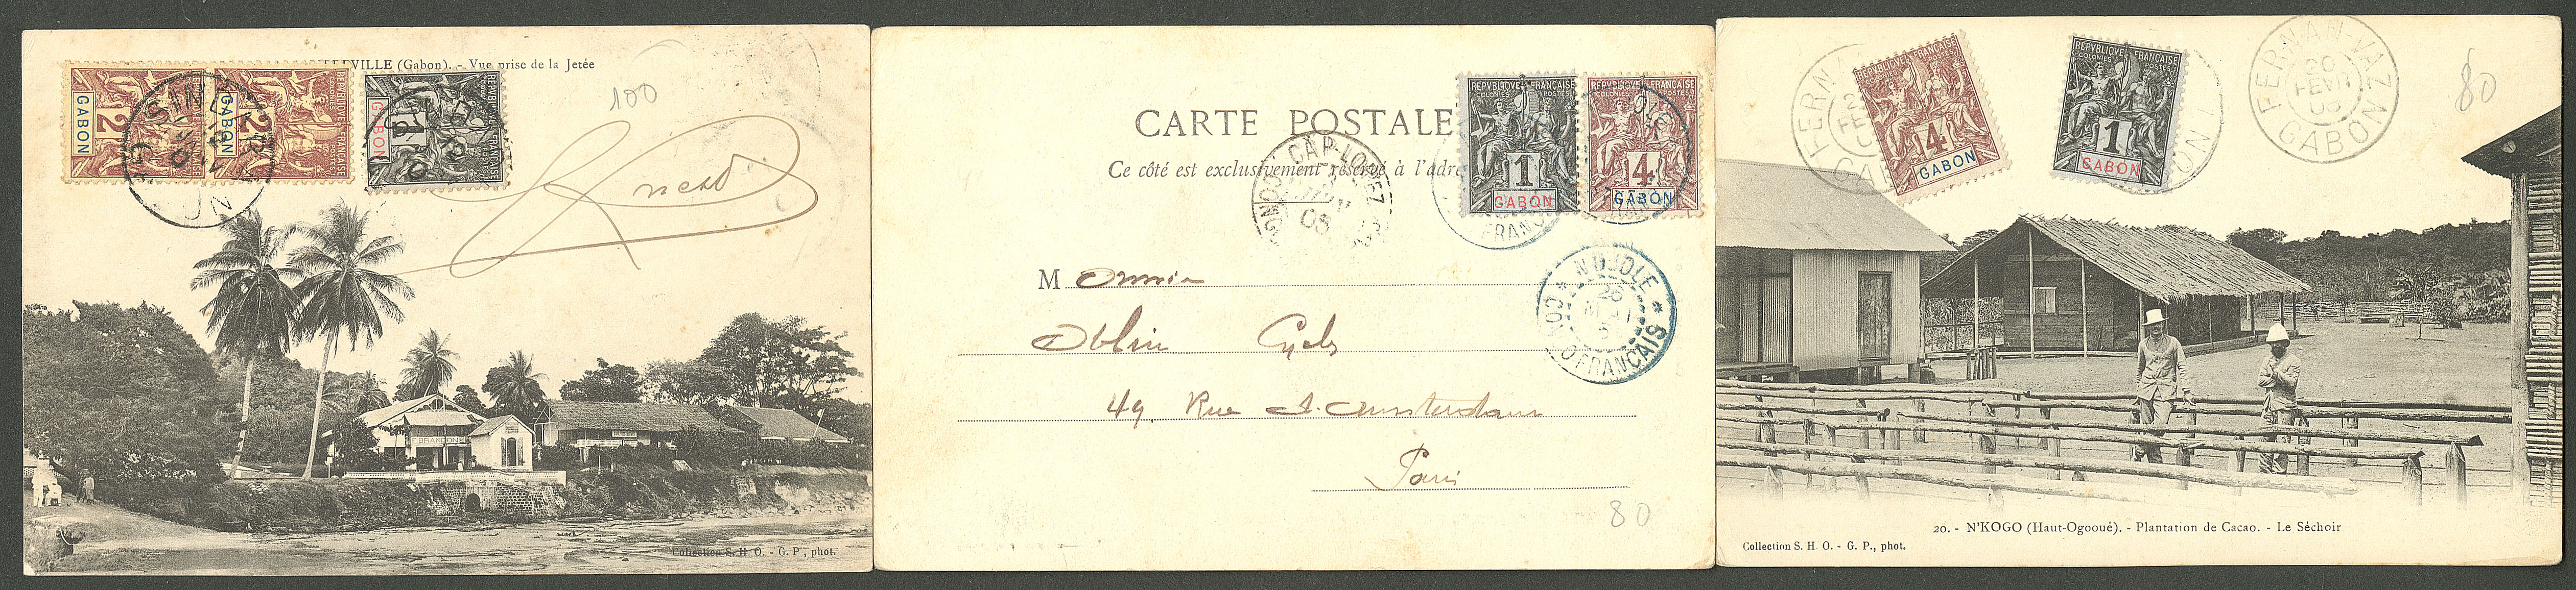 VILLE (Gabon). - Vue prise de la Jetée
REPVBLIQVE FRANÇAISE
2
GABON
REPVBLIQVE FRANÇAISE
COLONIES POSTES
2
GABON
REPVBLIQVE FRANÇAISE
1
GABON
100
BRANDON
Collection S. H. O. - G. P., phot.
CARTE POSTALE
Ce côté est exclusivement réservé à l'adre
REPVBLIQVE FRANÇAISE
COLONIES POSTES
1
GABON
REPVBLIQVE FRANÇAISE
COLONIES POSTES
4
GABON
CAP-LOPEZ
05
FRANC
N'DJOLE
26
MAI
5
CONGO FRANCAIS
M
49 Rue d'Amsterdam
Paris
80
FERNAN-VAZ
20
FEVR
GABON
REPVBLIQVE FRANÇAISE
COLONIES POSTES
4
GABON
REPVBLIQVE FRANÇAISE
COLONIES POSTES
1
GABON
80
20. - N'KOGO (Haut-Ogooué). - Plantation de Cacao. - Le Séchoir
Collection S. H. O. - G. P., phot.